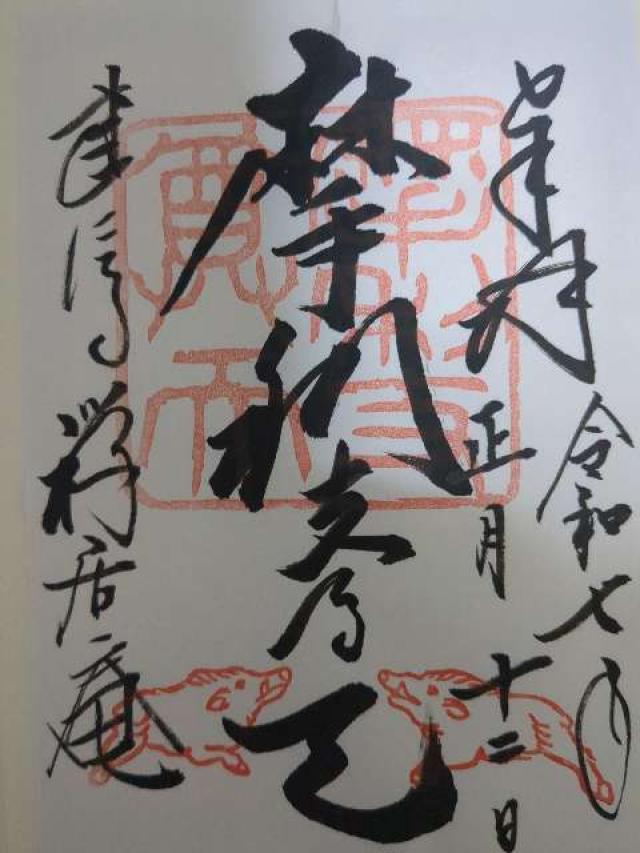 奉拝
令和七年
正月十二日
摩利支尊天
建仁寺
禅居庵